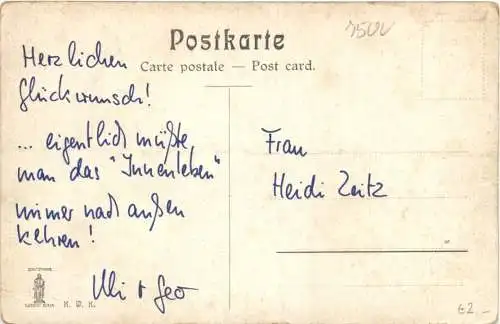 Postkarte
Carte postale — Post card.
Herzlichen
Glückwunsch!
... eigentlich müßte
man das "Innenleben"
immer nach außen
kehren!
Uli + Geo
Frau
Heidi Zeitz
K. D. K.
€2.-